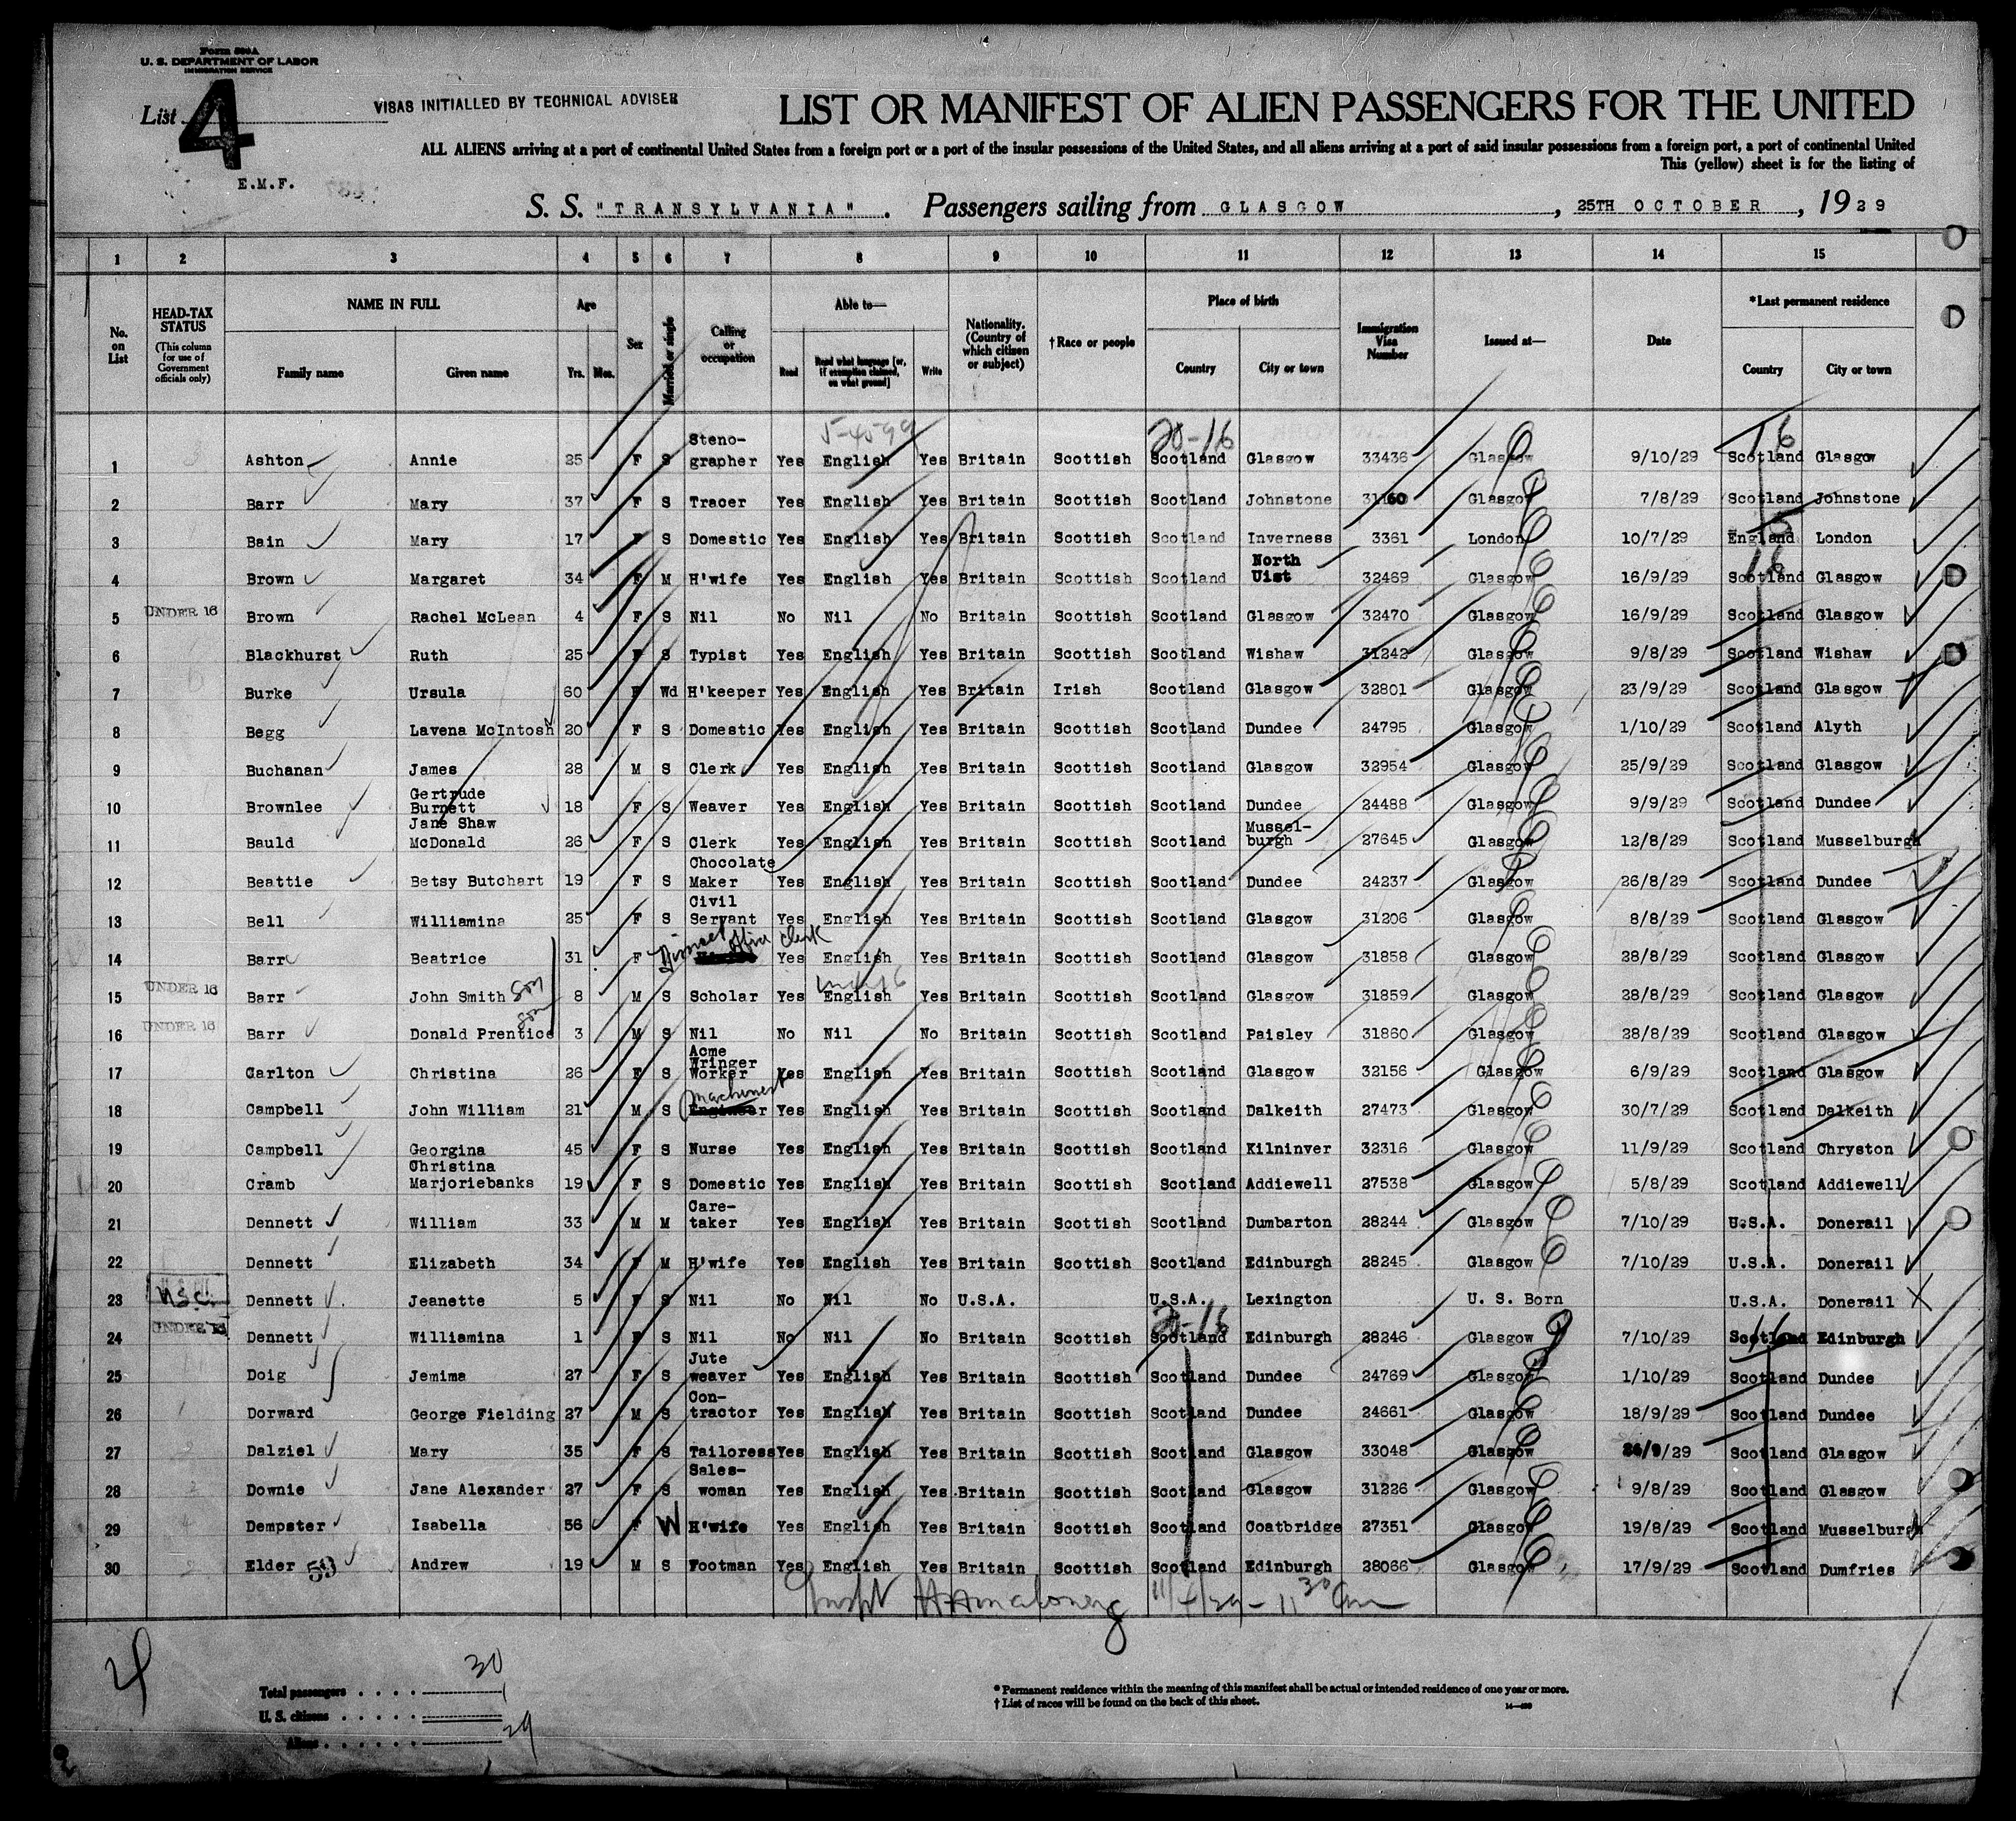 Form 500A
U. S. DEPARTMENT OF LABOR
IMMIGRATION SERVICE
List 4
VISAS INITIALLED BY TECHNICAL ADVISER
E.M.F.
LIST OR MANIFEST OF ALIEN PASSENGERS FOR THE UNITED
ALL ALIENS arriving at a port of continental United States from a foreign port or a port of the insular possessions of the United States, and all aliens arriving at a port of said insular possessions from a foreign port, a port of continental United
This (yellow) sheet is for the listing of
S. S. "TRANSYLVANIA". Passengers sailing from GLASGOW, 25TH OCTOBER, 1929
1 2 3 4 5 6 7 8 9 10 11 12 13 14 15
No. on List
HEAD-TAX STATUS (This column for use of Government officials only)
NAME IN FULL
Family name Given name
Age
Yrs. Mos.
Sex
Married or single
Calling or occupation
Able to—
Read
Read what language [or, if exemption claimed, on what ground]
Write
Nationality. (Country of which citizen or subject)
†Race or people
Place of birth
Country City or town
Immigration Visa Number
Issued at—
Date
*Last permanent residence
Country City or town
5-4599 20-16 16
1 Ashton Annie 25 F S Steno-grapher Yes English Yes Britain Scottish Scotland Glasgow 33436 Glasgow 9/10/29 Scotland Glasgow
2 Barr Mary 37 F S Tracer Yes English Yes Britain Scottish Scotland Johnstone 31160 Glasgow 7/8/29 Scotland Johnstone
3 Bain Mary 17 F S Domestic Yes English Yes Britain Scottish Scotland Inverness 3361 London 10/7/29 England London
4 Brown Margaret 34 F M H'wife Yes English Yes Britain Scottish Scotland North Uist 32469 Glasgow 16/9/29 Scotland Glasgow
5 UNDER 16 Brown Rachel McLean 4 F S Nil No Nil No Britain Scottish Scotland Glasgow 32470 Glasgow 16/9/29 Scotland Glasgow
6 Blackhurst Ruth 25 F S Typist Yes English Yes Britain Scottish Scotland Wishaw 31242 Glasgow 9/8/29 Scotland Wishaw
7 Burke Ursula 60 F Wd H'keeper Yes English Yes Britain Irish Scotland Glasgow 32801 Glasgow 23/9/29 Scotland Glasgow
8 Begg Lavena McIntosh 20 F S Domestic Yes English Yes Britain Scottish Scotland Dundee 24795 Glasgow 1/10/29 Scotland Alyth
9 Buchanan James 28 M S Clerk Yes English Yes Britain Scottish Scotland Glasgow 32954 Glasgow 25/9/29 Scotland Glasgow
10 Brownlee Gertrude Burnett 18 F S Weaver Yes English Yes Britain Scottish Scotland Dundee 24488 Glasgow 9/9/29 Scotland Dundee
11 Bauld Jane Shaw McDonald 26 F S Clerk Yes English Yes Britain Scottish Scotland Mussel-burgh 27645 Glasgow 12/8/29 Scotland Musselburgh
12 Beattie Betsy Butchart 19 F S Chocolate Maker Yes English Yes Britain Scottish Scotland Dundee 24237 Glasgow 26/8/29 Scotland Dundee
13 Bell Williamina 25 F S Civil Servant Yes English Yes Britain Scottish Scotland Glasgow 31206 Glasgow 8/8/29 Scotland Glasgow
14 Barr Beatrice 31 F Divorced office clerk Yes English Yes Britain Scottish Scotland Glasgow 31858 Glasgow 28/8/29 Scotland Glasgow
15 UNDER 16 Barr John Smith son 8 M S Scholar Yes English under 16 Yes Britain Scottish Scotland Glasgow 31859 Glasgow 28/8/29 Scotland Glasgow
16 UNDER 16 Barr Donald Prentice son 3 M S Nil No Nil No Britain Scottish Scotland Paisley 31860 Glasgow 28/8/29 Scotland Glasgow
17 Carlton Christina 26 F S Acme Wringer Worker Yes English Yes Britain Scottish Scotland Glasgow 32156 Glasgow 6/9/29 Scotland Glasgow
18 Campbell John William 21 M S Engineer machinest Yes English Yes Britain Scottish Scotland Dalkeith 27473 Glasgow 30/7/29 Scotland Dalkeith
19 Campbell Georgina 45 F S Nurse Yes English Yes Britain Scottish Scotland Kilninver 32316 Glasgow 11/9/29 Scotland Chryston
20 Cramb Christina Marjoriebanks 19 F S Domestic Yes English Yes Britain Scottish Scotland Addiewell 27538 Glasgow 5/8/29 Scotland Addiewell
21 Dennett William 33 M M Care-taker Yes English Yes Britain Scottish Scotland Dumbarton 28244 Glasgow 7/10/29 U.S.A. Donerail
22 Dennett Elizabeth 34 F M H'wife Yes English Yes Britain Scottish Scotland Edinburgh 28245 Glasgow 7/10/29 U.S.A. Donerail
23 U.S.C. Dennett Jeanette 5 F S Nil No Nil No U.S.A. U.S.A. Lexington U. S. Born U.S.A. Donerail
20-16 16
24 UNDER 16 Dennett Williamina 1 F S Nil No Nil No Britain Scottish Scotland Edinburgh 28246 Glasgow 7/10/29 Scotland Edinburgh
25 Doig Jemima 27 F S Jute weaver Yes English Yes Britain Scottish Scotland Dundee 24769 Glasgow 1/10/29 Scotland Dundee
26 Dorward George Fielding 27 M S Con-tractor Yes English Yes Britain Scottish Scotland Dundee 24661 Glasgow 18/9/29 Scotland Dundee
27 Dalziel Mary 35 F S Tailoress Yes English Yes Britain Scottish Scotland Glasgow 33048 Glasgow 26/9/29 Scotland Glasgow
28 Downie Jane Alexander 27 F S Sales-woman Yes English Yes Britain Scottish Scotland Glasgow 31226 Glasgow 9/8/29 Scotland Glasgow
29 Dempster Isabella 56 F W H'wife Yes English Yes Britain Scottish Scotland Coatbridge 27351 Glasgow 19/8/29 Scotland Musselburgh
30 Elder 59 Andrew 19 M S Footman Yes English Yes Britain Scottish Scotland Edinburgh 28066 Glasgow 17/9/29 Scotland Dumfries
11/4/29 - 11 30 am
4
Total passengers 30
U. S. citizens 1
Aliens 29
* Permanent residence within the meaning of this manifest shall be actual or intended residence of one year or more.
† List of races will be found on the back of this sheet.